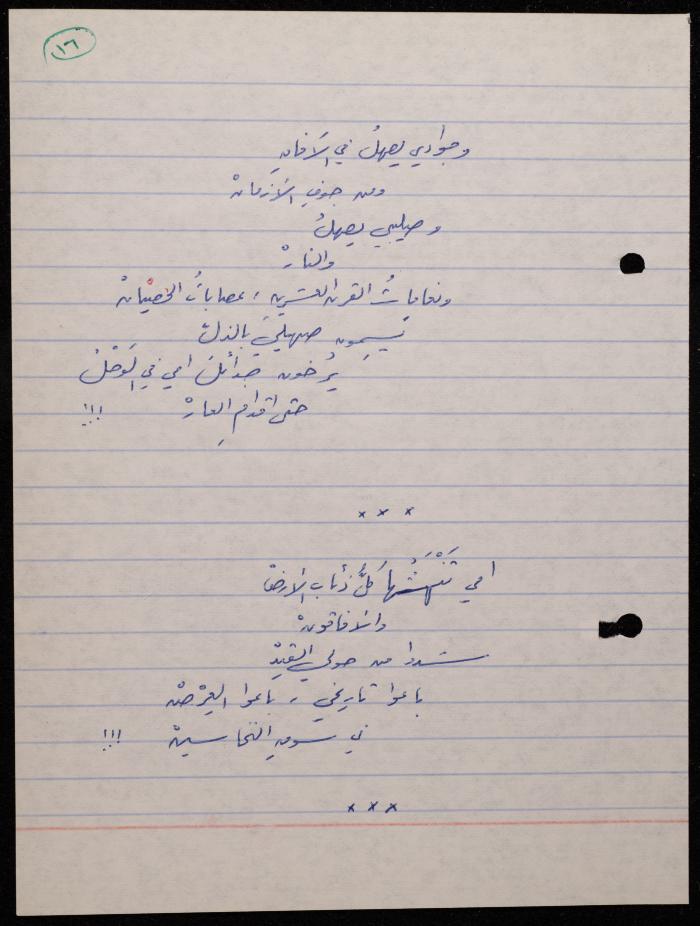 ١٦
وجوادي يصهلُ في الآفاقِ
ومن جوفِ الأزمانْ
وصليبي يصهلُ
والنارْ
ونفاياتُ القرن العشرين، عصاباتُ الخصيانْ
يَسِمون صهيلي بالذلّ
يُرخون جدائلَ امي في الوَحْلْ
حتى اقدامِ العارْ !!!
× × ×
امي تَنْهَشُها كلُّ ذئاب الارضْ
والافاقونْ
شدوا من حولي القيدْ
باعوا تاريخي، باعوا العِرْضْ
في سوقِ النخاسينْ !!!
× × ×